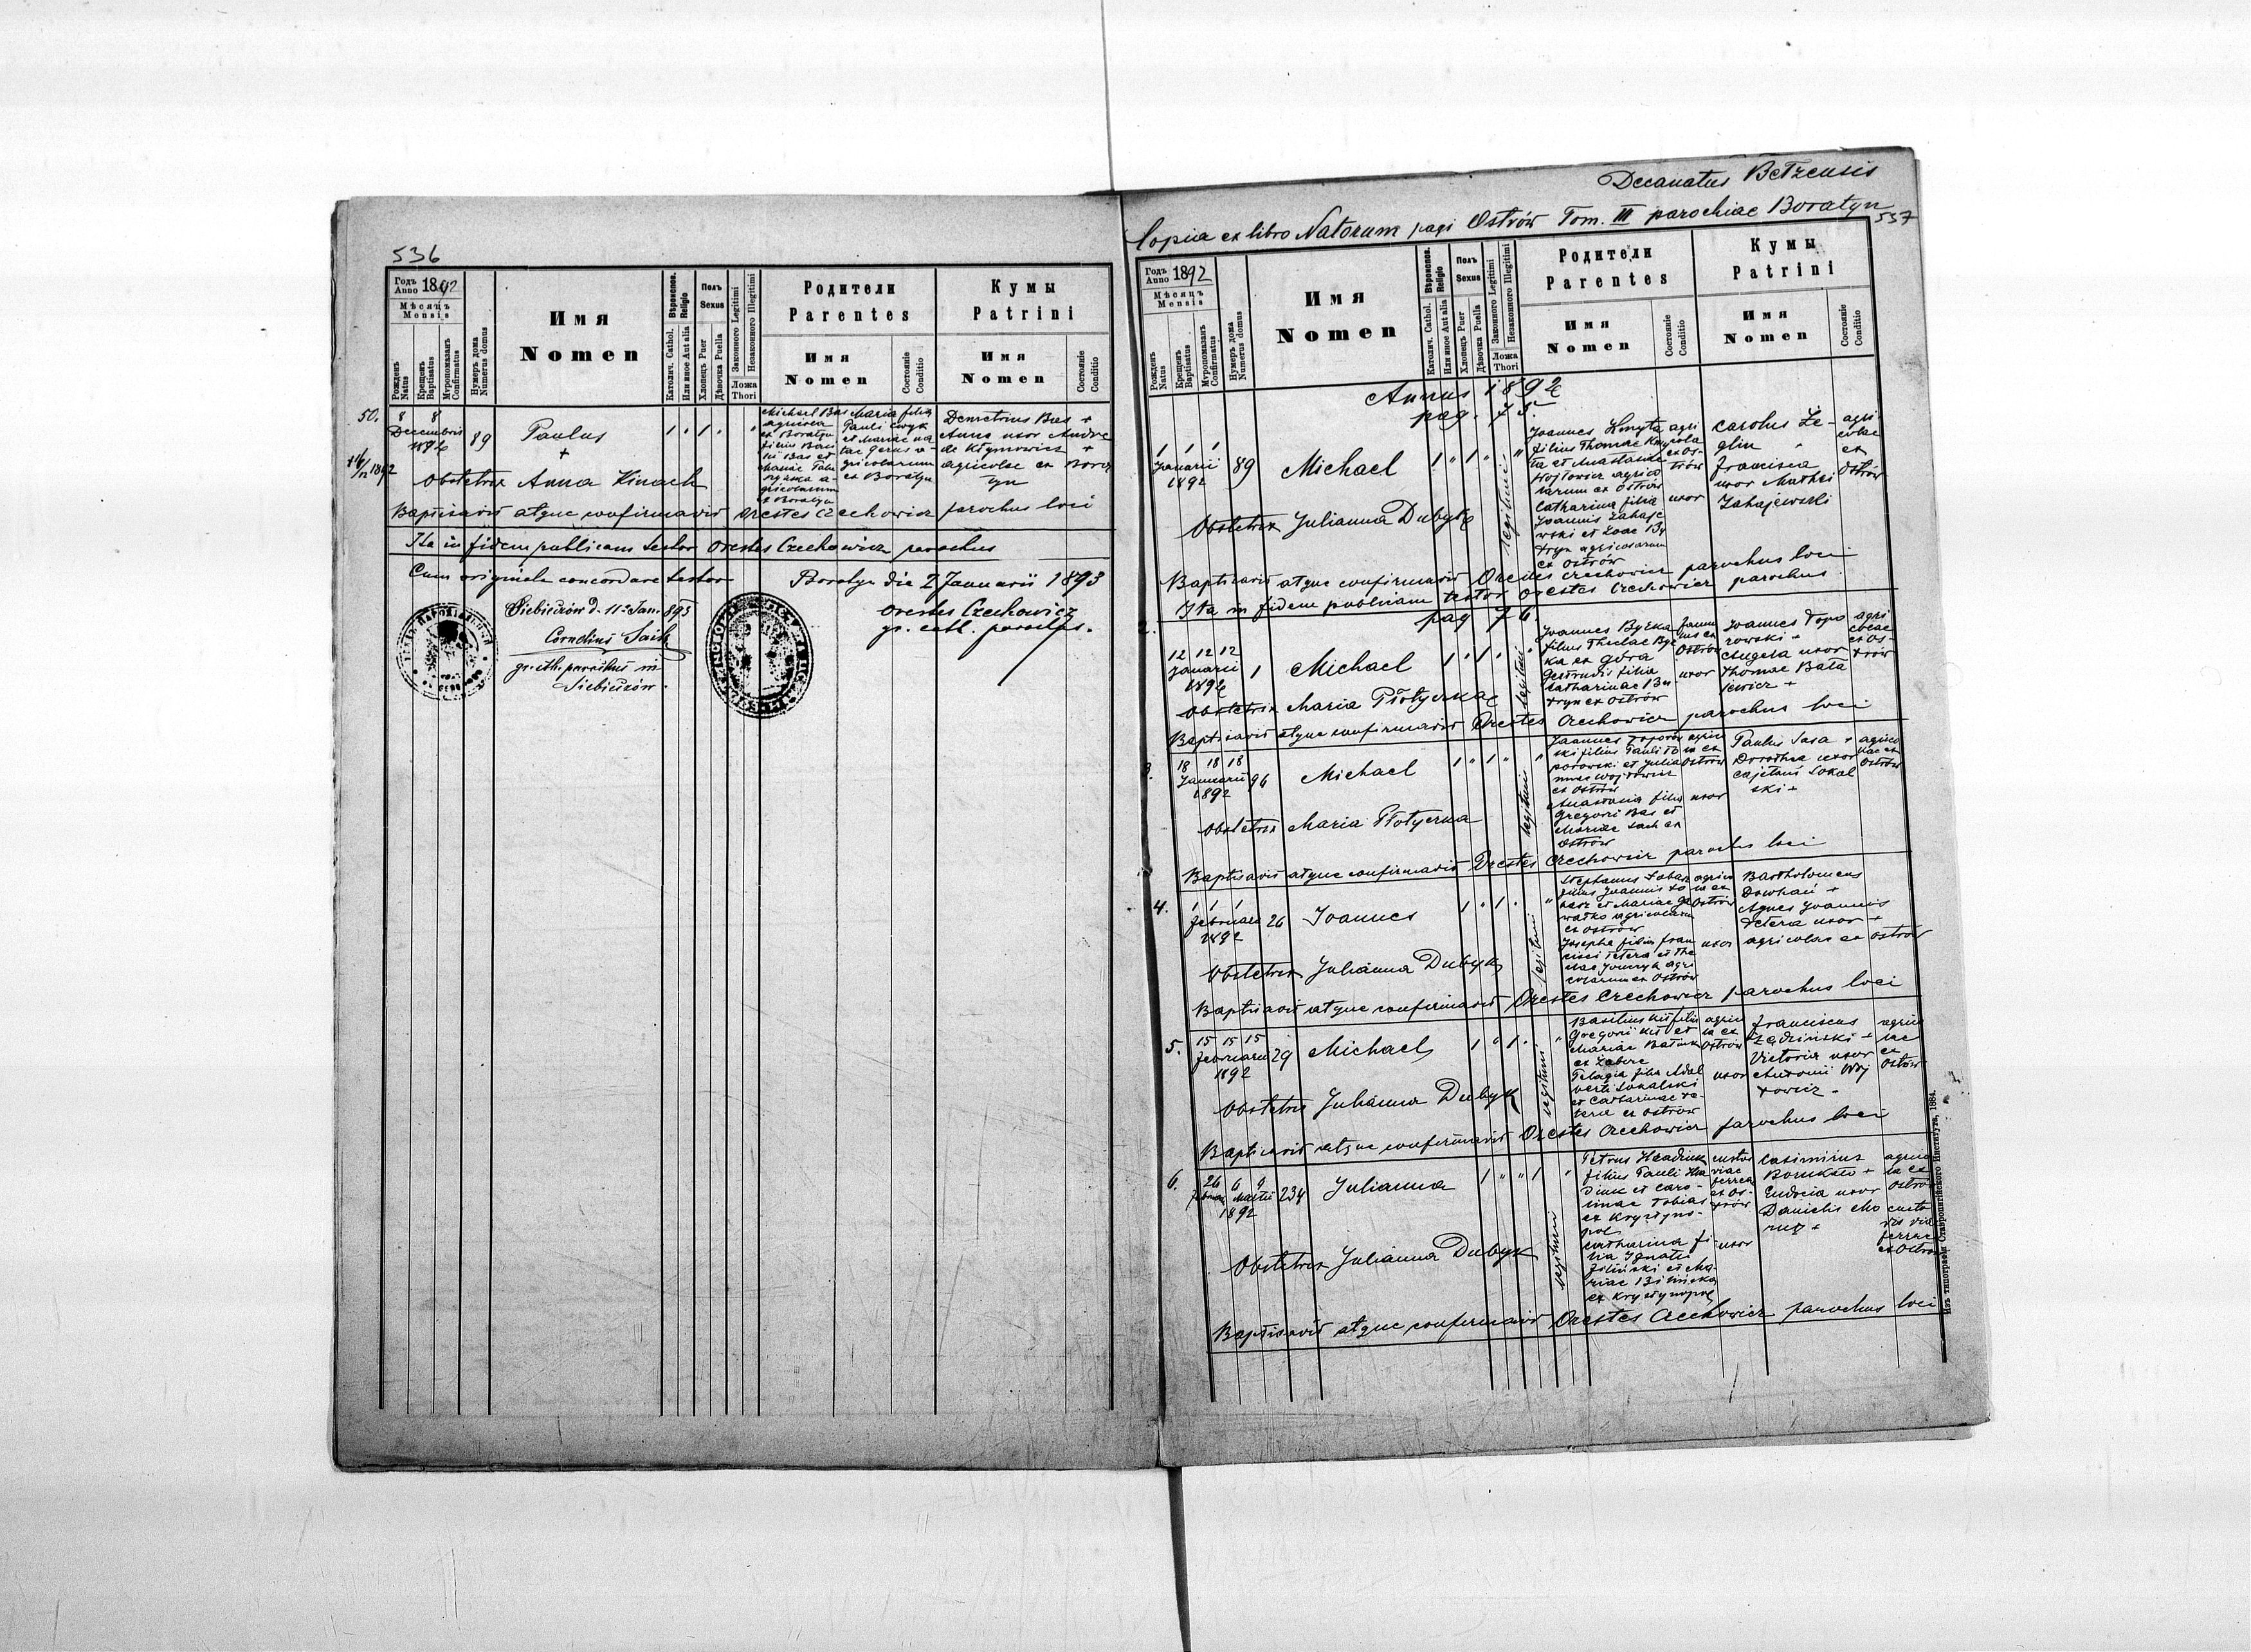 536
Годъ Anno 1892
Мѣсяцъ
Mensis
Рожденъ Natus
Крещенъ Baptisatus
Муропомазанъ Confirmatus
Нумеръ дома Numerus domus
Имя
Nomen
Вѣроиспов. Religio
Католич. Cathol.
Или иное Aut alia
Полъ
Sexus
Хлопецъ Puer
Дѣвочка Puella
Законного Legitimi
Незаконного Illegitimi
Ложа
Thori
Родители
Parentes
Имя
Nomen
Состояніе
Conditio
Кумы
Patrini
Имя
Nomen
Состояніе
Conditio
50.
8 8
Decembris
1892
89
Paulus
+
1 " 1 "
Michael Bas
agricola
ex Boratyn
filius Basi
lii Bas et
Mariae
agricolarum
ex Boratyn
Maria filia
Pauli
et Mariae na
tae Gerus a-
gricolarum
ex Boratyn
Demetrius Bas +
Anna uxor Andre
ae Klymowicz +
agricolae ex Borat
yn
Obstetrix Anna Kinach
Baptisavit atque confirmavit Orestes Czechowicz parochus loci
Ita in fidem publicam testor Orestes Czechowicz parochus
Cum originale concordare testor
Boratyn die 2 Januarii 1893
Orestes Czechowicz
gr. cath. parochus.
Siebieczów d. 11 Jan. 893
Cornelius
gr. cth. parochus in
Siebieczów.
Decanatus Bełzensis
Copia ex libro Natorum pagi Ostrów Tom. III parochiae Boratyn
537
Годъ Anno 1892
Мѣсяцъ
Mensis
Рожденъ Natus
Крещенъ Baptisatus
Муропомазанъ Confirmatus
Нумеръ дома Numerus domus
Имя
Nomen
Вѣроиспов. Religio
Католич. Cathol.
Или иное Aut alia
Полъ
Sexus
Хлопецъ Puer
Дѣвочка Puella
Законного Legitimi
Незаконного Illegitimi
Ложа
Thori
Родители
Parentes
Имя
Nomen
Состояніе
Conditio
Кумы
Patrini
Имя
Nomen
Состояніе
Conditio
Annus 1892
pag. 75.
1 1 1
Januarii
1892
89
Michael
1 " 1 " "
legitimi
Joannes Kmyta
filius Thomae Kmy
ta et Anastasiae
Wojtowicz agrico
larum ex Ostrów
Catharina filia
Joannis Zahaje
wski et
agricolarum
ex Ostrów
agri
cola
ex Os-
trów
uxor
Carolus Że-
glin "
Francisca
uxor Mathei
Zahajewski
agri
colae
ex
Ostrów
Obstetrix Julianna Dubyk
Baptisavit atque confirmavit Orestes Czechowicz parochus loci
Ita in fidem publicam testor Orestes Czechowicz parochus.
pag 76.
2.
12 12 12
Januarii
1892
1
Michael
1 " 1 " "
legitimi
Joannes Byrka
filius Theclae Byr
ka ex Góra
Gertrudis filia
Catharinae Bu
tryn ex Ostrów
uxor
Joannes Topo
rowski +
Angela uxor
Thomae Bata
jewicz +
agri
colae
ex Os-
trów
Obstetrix Maria Płotycznae
Baptisavit atque confirmavit Orestes Czechowicz parochus loci
3.
18 18 18
Januarii
1892
96
Michael
1 " 1 " "
legitimi
Joannes Toporow
ski filius Pauli To
porowski et Julia
nnae Wojtowicz
ex Ostrów
Anastasia filia
Gregorii Bas et
Mariae Sach ex
Ostrów
agrico
la ex
Ostrów
uxor
Paulus Sasa +
Dorothea uxor
Cajetani Sokal
ski +
agrico
lae ex
Ostrów
Obstetrix Maria Płotyczna
Baptisavit atque confirmavit Orestes Czechowicz parochus loci
4.
1 1 1
Februarii
1892
26
Joannes
1 " 1 " "
legitimi
Stephanus Tobasz
filius Joannis To
basz et Mariae
agricolarum
ex Ostrów
Josepha filia Fran
cisci Tetera et The
clae
agri
colarum ex Ostrów
agrico
la ex
Ostrów
uxor
Bartholomeus
Dowhań +
Agnes Joannis
Tetera uxor +
agricolae ex Ostrów
Obstetrix Julianna Dubyk
Baptisavit atque confirmavit Orestes Czechowicz parochus loci
5.
15 15 15
Februarii
1892
29
Michael
1 " 1 " "
legitimi
Basilius Kit filius
Gregorii Kit et
Mariae
ex Żabcze
Pelagia filia Adal
berti Sokalski
et Catharinae Te-
tera ex Ostrów
agrico
la ex
Ostrów
uxor
Franciscus
+
Victoria uxor
Antonii Woj
towicz.
agrico
lae
ex
Ostrów
Obstetrix Julianna Dubyk
Baptisavit atque confirmavit Orestes Czechowicz parochus loci
6.
26 6 6
Februar Martii
1892
234
Julianna
1 " " 1 "
legitimi
Petrus Hładiuk
filius Pauli Hła
diuk et Caro-
linae Tobias
ex Krystyno-
pol
Catharina fi-
lia Ignatii
Zieliński et Ma-
riae Bilińska
ex Krystynopol
custos
viae
ferreae
ex Os-
trów
uxor
Casimirus
+
Eudocia uxor
Danielis
+
agrico
la ex
Ostrów
custo
dis viae
ferreae
ex Ostrów
Obstetrix Julianna Dubyk
Baptisavit atque confirmavit Orestes Czechowicz parochus loci
Изъ типографіи Ставропигійского Института, 1884.